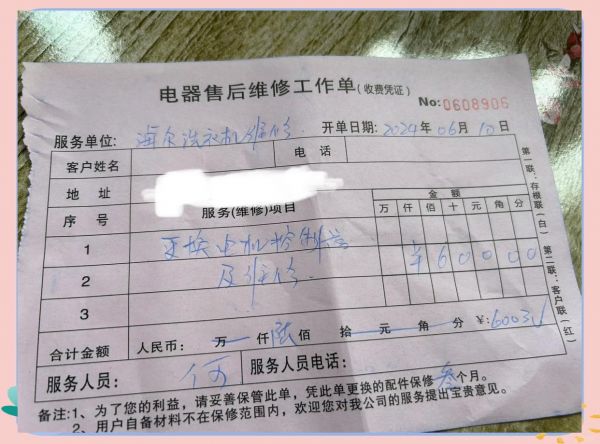 电器售后维修工作单(收费凭证)
No:0608906
服务单位: 海尔洗衣机维修 开单日期: 2024年06月10日
客户姓名 电话
地址
序号 服务(维修)项目 金额
万 仟 佰 十 元 角 分
1 更换电机控制器
及维修 ¥60000
2
3
合计金额 人民币: 万 仟 陆佰 拾 元 角 分 ¥:600
服务人员: 何 服务人员电话:
备注:1、为了您的利益,请妥善保管此单,凭此单更换的配件保修叁个月。
2、用户自备材料不在保修范围内,欢迎您对我公司的服务提出宝贵意见。
第一联:存根联(白) 第二联:客户联(红)